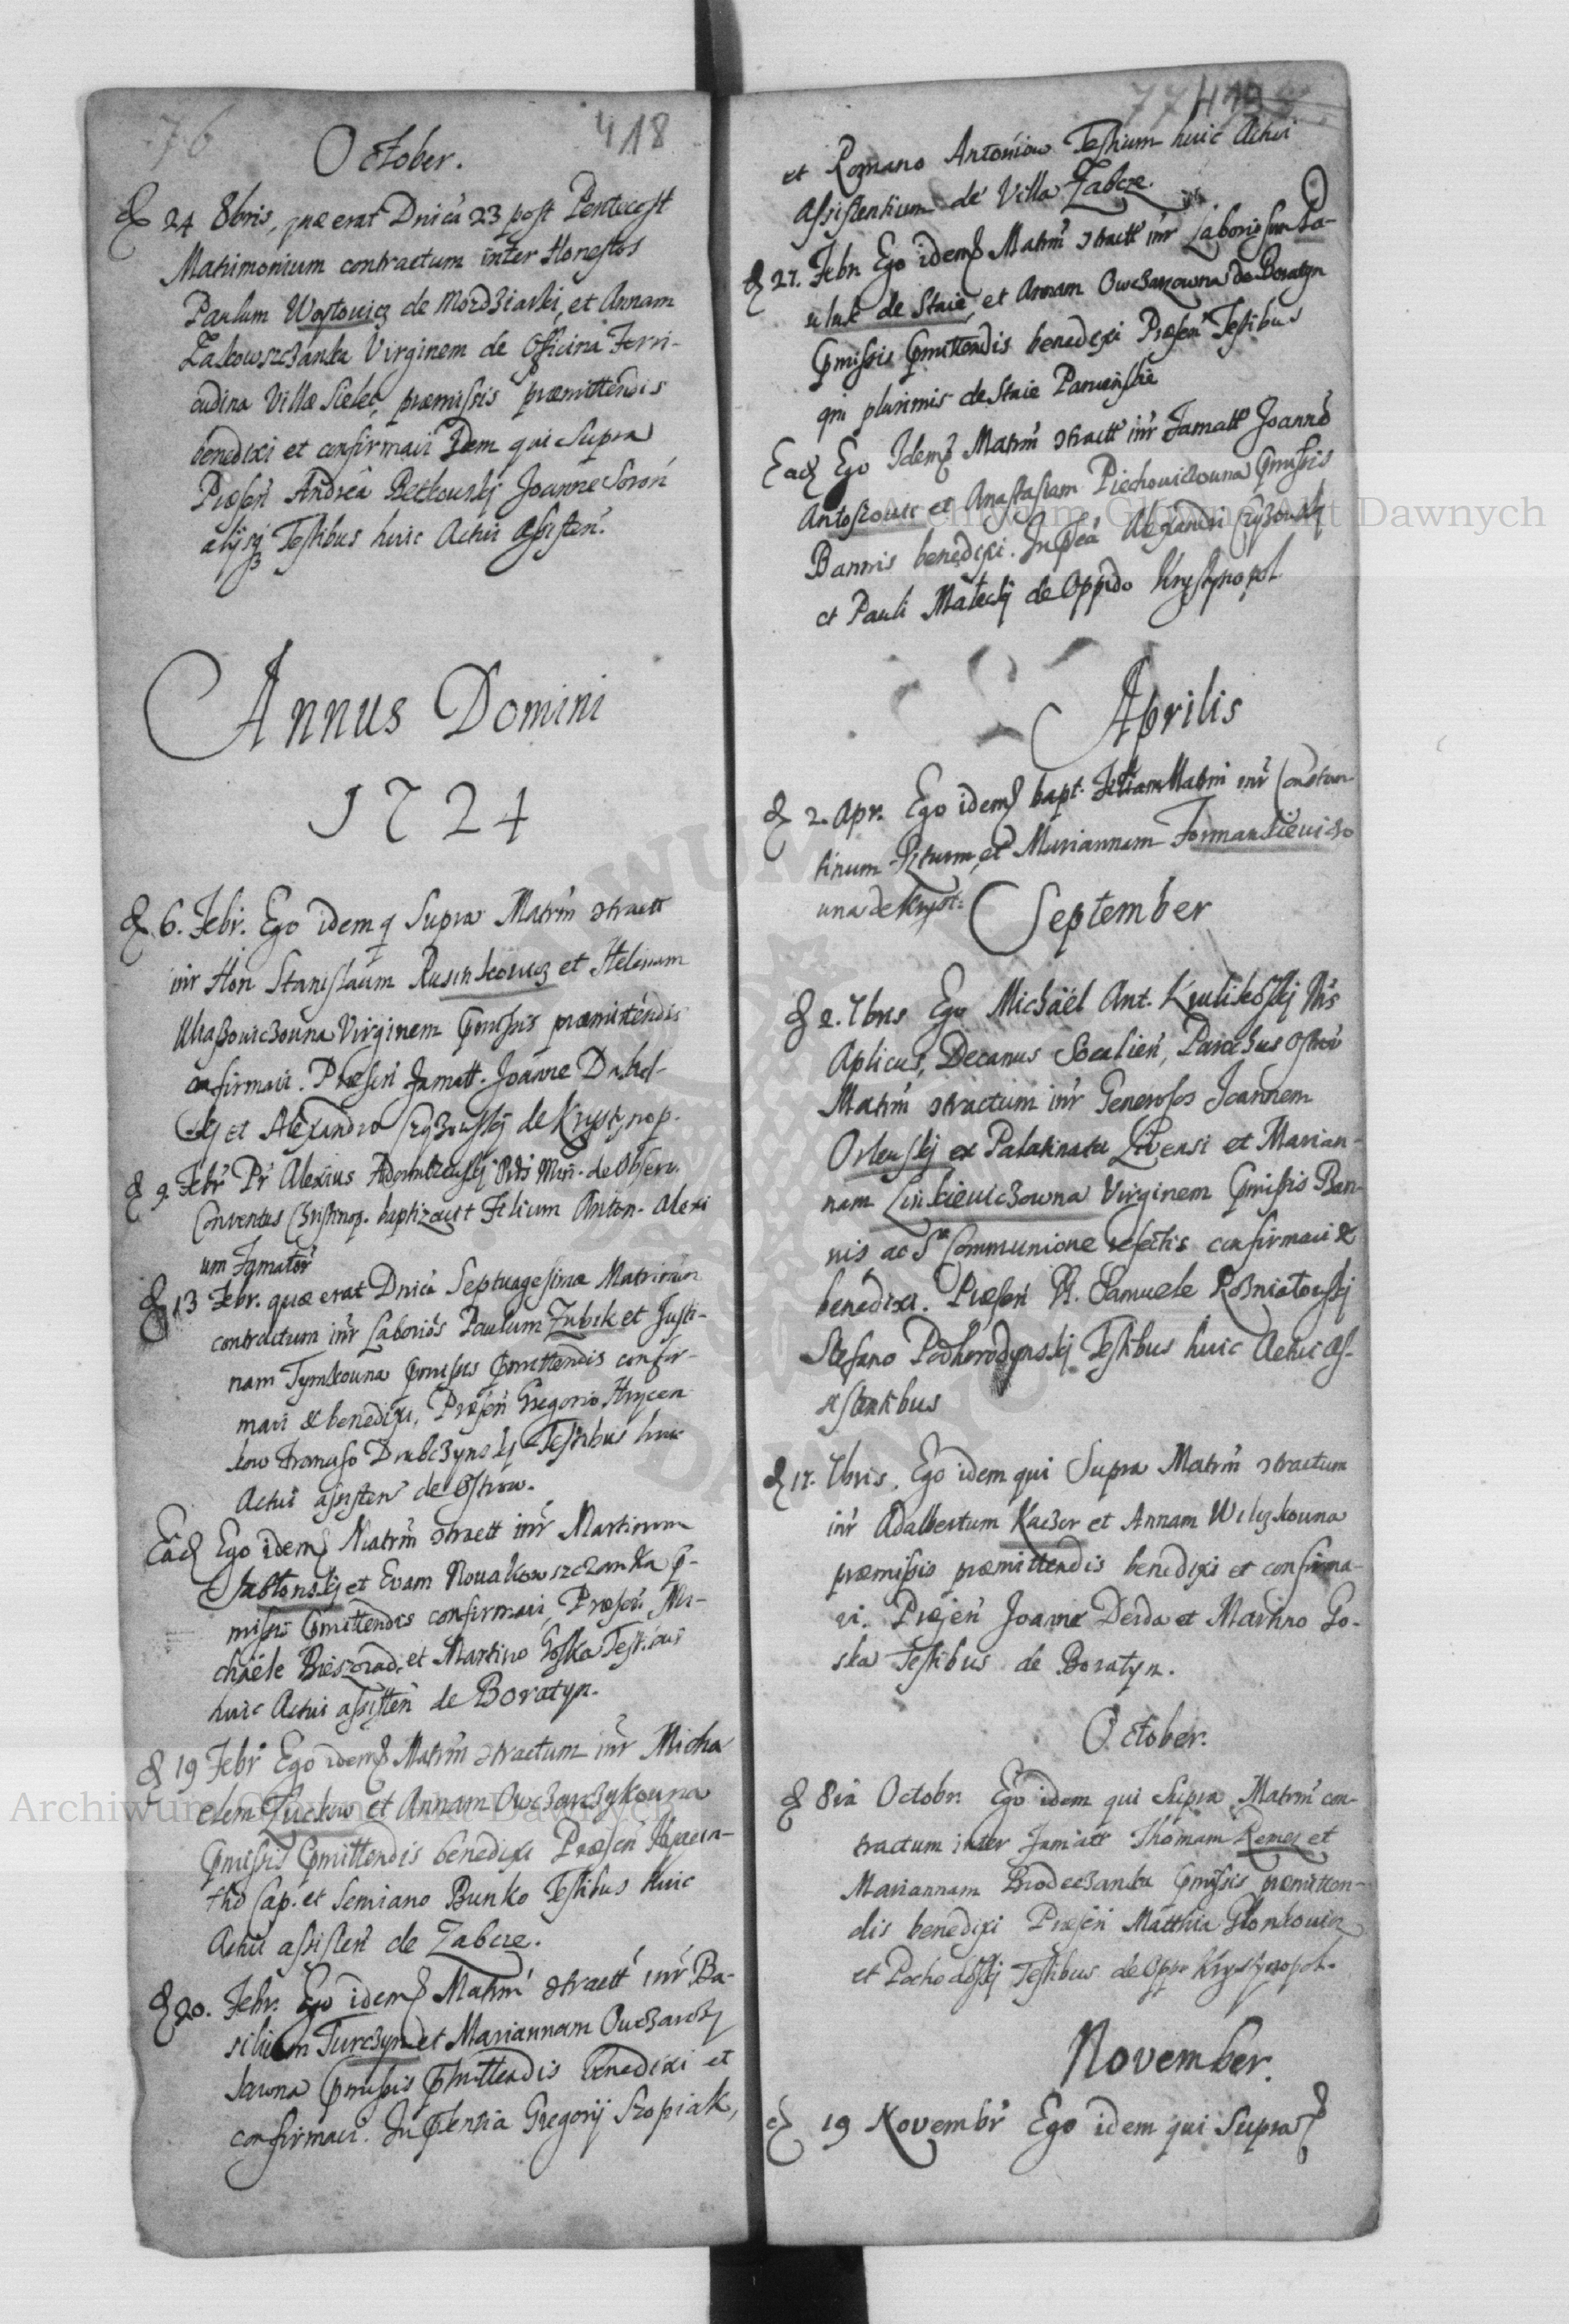 76
418
October.
24 8bris, quae erat Dnica 23 post Pentecost
Matrimonium contractum inter Honestos
Paulum Woytowicz de Mordziarki, et Annam
Zakowszczanka Virginem de Officina Ferri-
cudina Villae Sielec, praemissis praemittendis
benedixi et confirmavi Idem qui Supra
Praesen Andrea Betkowskij Joanne Soron
alijsq Testibus huic Actui assisten.
Annus Domini
1724
6. Febr. Ego idem q Supra Matrm ɔtractt
inr Hon Stanislaum Rusinkowicz et Helenam
Virginem pmissis praemittendis
confirmavi. Praesen Famatt. Joanne Dabel-
skij et Alexandro Czyzowskij de Krystynop.
9 Febr Pr Alexius Ords Min. de Observ.
Conventus Cristinop. baptizavit Filium Anton. Alexi
um Famator
13 Febr. quae erat Dnica Septuagesimae Matrimon
contractum inr Laborios Paulum Zubik et Justi-
nam Tymkowna pmissis pmittendis confir-
mavi & benedixi, Praesen Gregorio Hrycen
kow Dubczynskij Testibus huic
Actui assisten de Ostrow.
Ead Ego idem Matrm ɔtractt inr Martinum
Jablonskij et Evam Nowakowszczanka p-
missis pmittendis confirmavi, Praesen Mi-
chaele Bieszczad, et Martino Goska Testibus
huic Actui assisten de Boratyn.
19 Febr Ego idem Matrm ɔtractum inr Micha
elem Fuckow et Annam Owczarczykowna
pmissis pmittendis benedixi Praesen Hyacin-
tho Cap. et Semiano Bunko Testibus huic
Actui assisten de Zabcze.
20. Febr. Ego idem Matrm ɔtractt inr Ba-
silium Turczyn et Mariannam Owczarczy
kowna pmissis pmittendis benedixi et
confirmavi. In psentia Gregorij Szopiak,
77
419
et Romano Antoniow Testium huic Actui
assistentium de Villa Zabcze.
27. Febr. Ego idem Matrm ɔtractt inr Laborios
de Staie, et Annam Owczarzowna de Boratyn
pmissis pmittendis benedixi Praesen Testibus
qm plurimis de Staie
Ead Ego Idem Matrm ɔtractt inr Famatt Joanne
Antoszowic et Anastasiam Piechowiczowna pmissis
Bannis benedixi. In psea Alexandri Czyzowskij
et Pauli Maleckij de Oppido Krystynopol
Aprilis
2. Apr. Ego idem bapt. Matrm inr Constan
tinum et Mariannam Formankiewiczo
wna de Kryst:
September
2. 7bris Ego Michael Ant. Kulikowskij Nrs
Aplicus, Decanus Socalien, Parochus Ostrow
Matrm ɔtractum inr Generosos Joannem
Orlewskij ex Palatinatu Livensi et Marian-
nam Linkiewiczowna Virginem pmissis Ban-
nis ac S Communione refectis confirmavi &
benedixi. Praesen Samuele Rozniatowskij
Stefano Podhorodynskij Testibus huic Actui as-
sistentibus
17. 7bris. Ego idem qui Supra Matrm ɔtractum
inr Adalbertum Kaczor et Annam Wilczkowna
praemissis praemittendis benedixi et confirma-
vi. Praesen Joanne Derda et Martino Go-
ska Testibus de Boratyn.
October.
8va Octobr. Ego idem qui Supra Matrm con-
tractum inter Famatt Thomam Remez et
Mariannam Brodeczanka pmissis praemitten-
dis benedixi Praesen Matthia
et Testibus de Opp. Krystynopol.
November.
19 Novembr Ego idem qui Supra
Archiwum Główne Akt Dawnych
Archiwum Główne Akt Dawnych